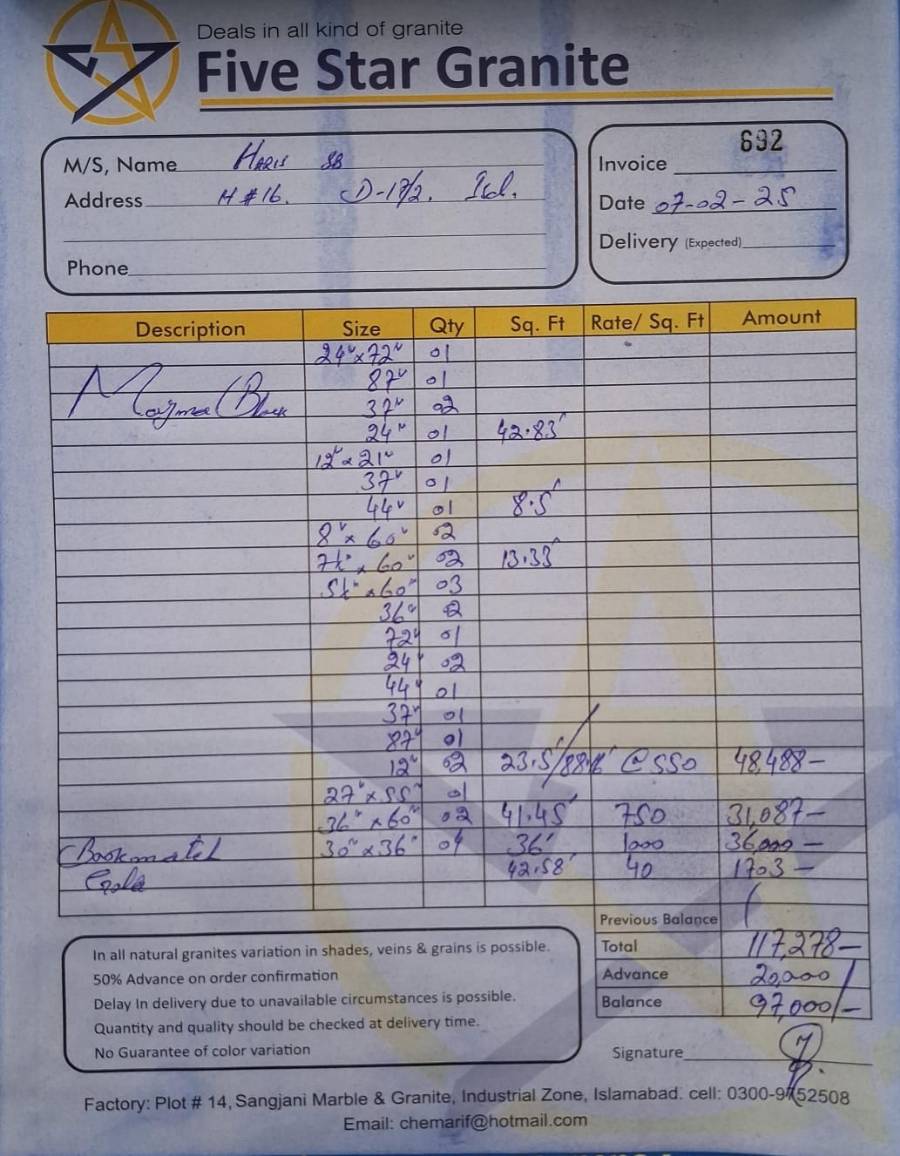 Deals in all kind of granite
Five Star Granite
M/S, Name HARIS SB
Invoice 692
Address H # 16. D-17/2. Isd.
Date 07-02-25
Delivery (Expected)
Phone
Description Size Qty Sq. Ft Rate/ Sq. Ft Amount
24" x 72" 01
87" 01
Black 37" 02
24" 01 42.83'
12" x 21" 01
37" 01
44" 01 8.5'
8" x 60" 02
7½" x 60" 02 13.33'
5½" x 60" 03
36" 2
72" 01
24" 02
44" 01
37" 01
87" 01
12" 02 23.5'/88.16' @ 550 48,488-
27" x 55" 01
36" x 60" 02 41.45' 750 31,087-
Bookmatch 30" x 36" 04 36' 1000 36,000-
Gola 42.58' 40 1703-
Previous Balance
Total 117,278-
Advance 20,000/
Balance 97,000/-
In all natural granites variation in shades, veins & grains is possible.
50% Advance on order confirmation
Delay In delivery due to unavailable circumstances is possible.
Quantity and quality should be checked at delivery time.
No Guarantee of color variation
Signature
Factory: Plot # 14, Sangjani Marble & Granite, Industrial Zone, Islamabad. cell: 0300-9752508
Email: chemarif@hotmail.com